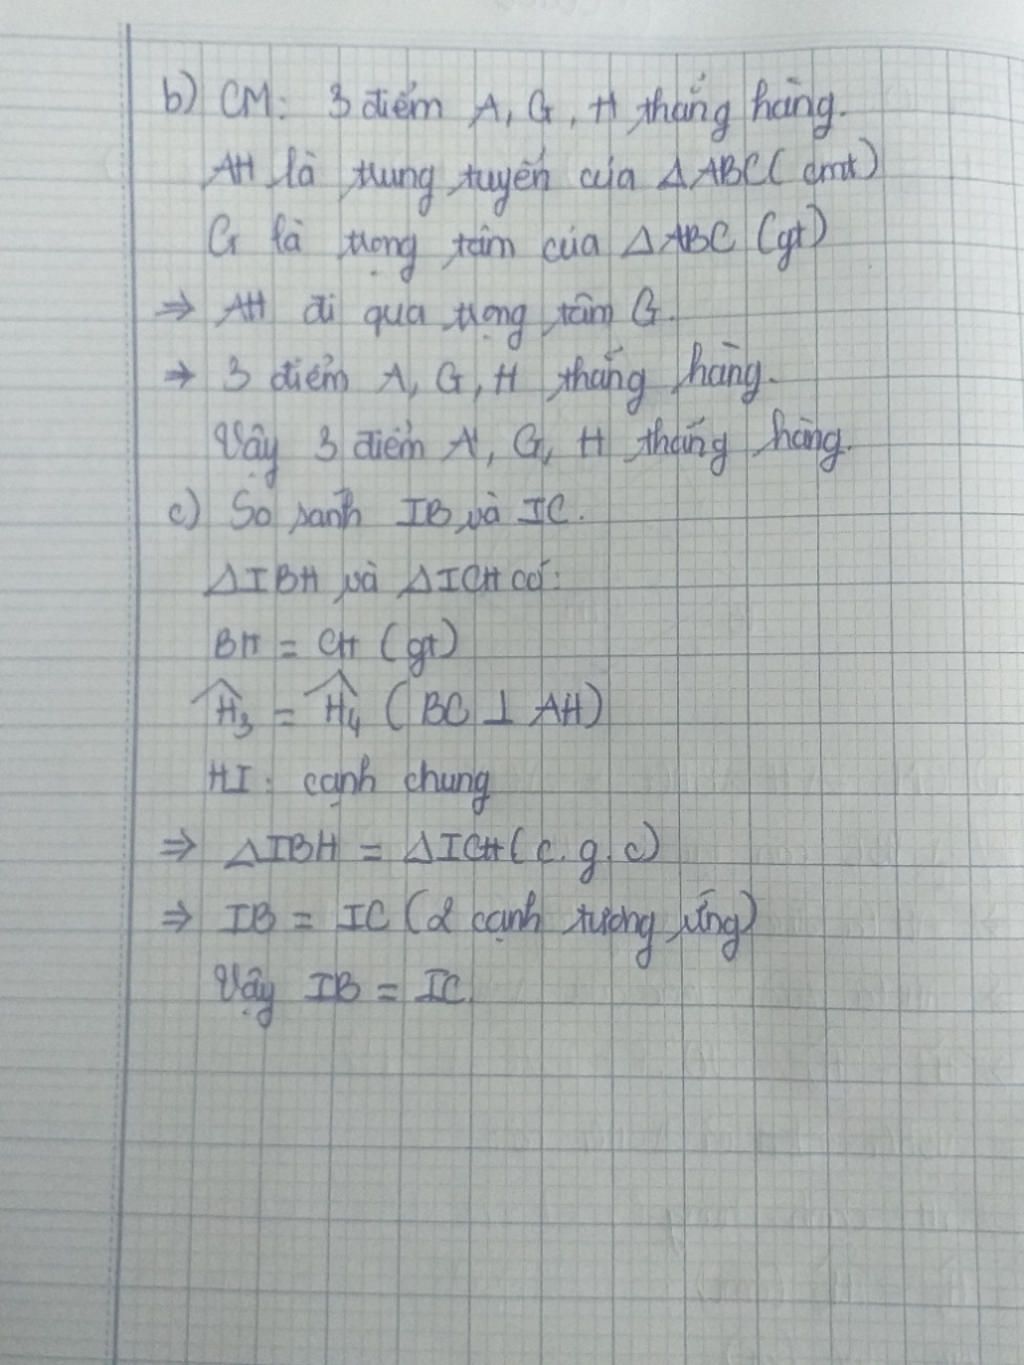 b) CM: 3 điểm A, G, H thẳng hàng.
AH là trung tuyến của ΔABC (cmt)
G là trọng tâm của ΔABC (gt)
⇒ AH đi qua trọng tâm G.
⇒ 3 điểm A, G, H thẳng hàng.
Vậy 3 điểm A, G, H thẳng hàng.
c) So sánh IB và IC.
ΔIBH và ΔICH có:
BH = CH (gt)
Ĥ₃ = Ĥ₄ (BC ⊥ AH)
HI: cạnh chung
⇒ ΔIBH = ΔICH (c.g.c)
⇒ IB = IC (2 cạnh tương ứng)
Vậy IB = IC